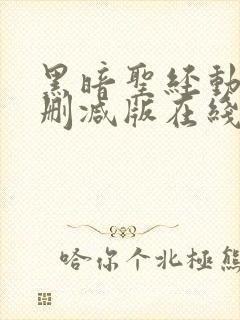 黑暗聖經動
刪減版在綫
哈你个北極熊